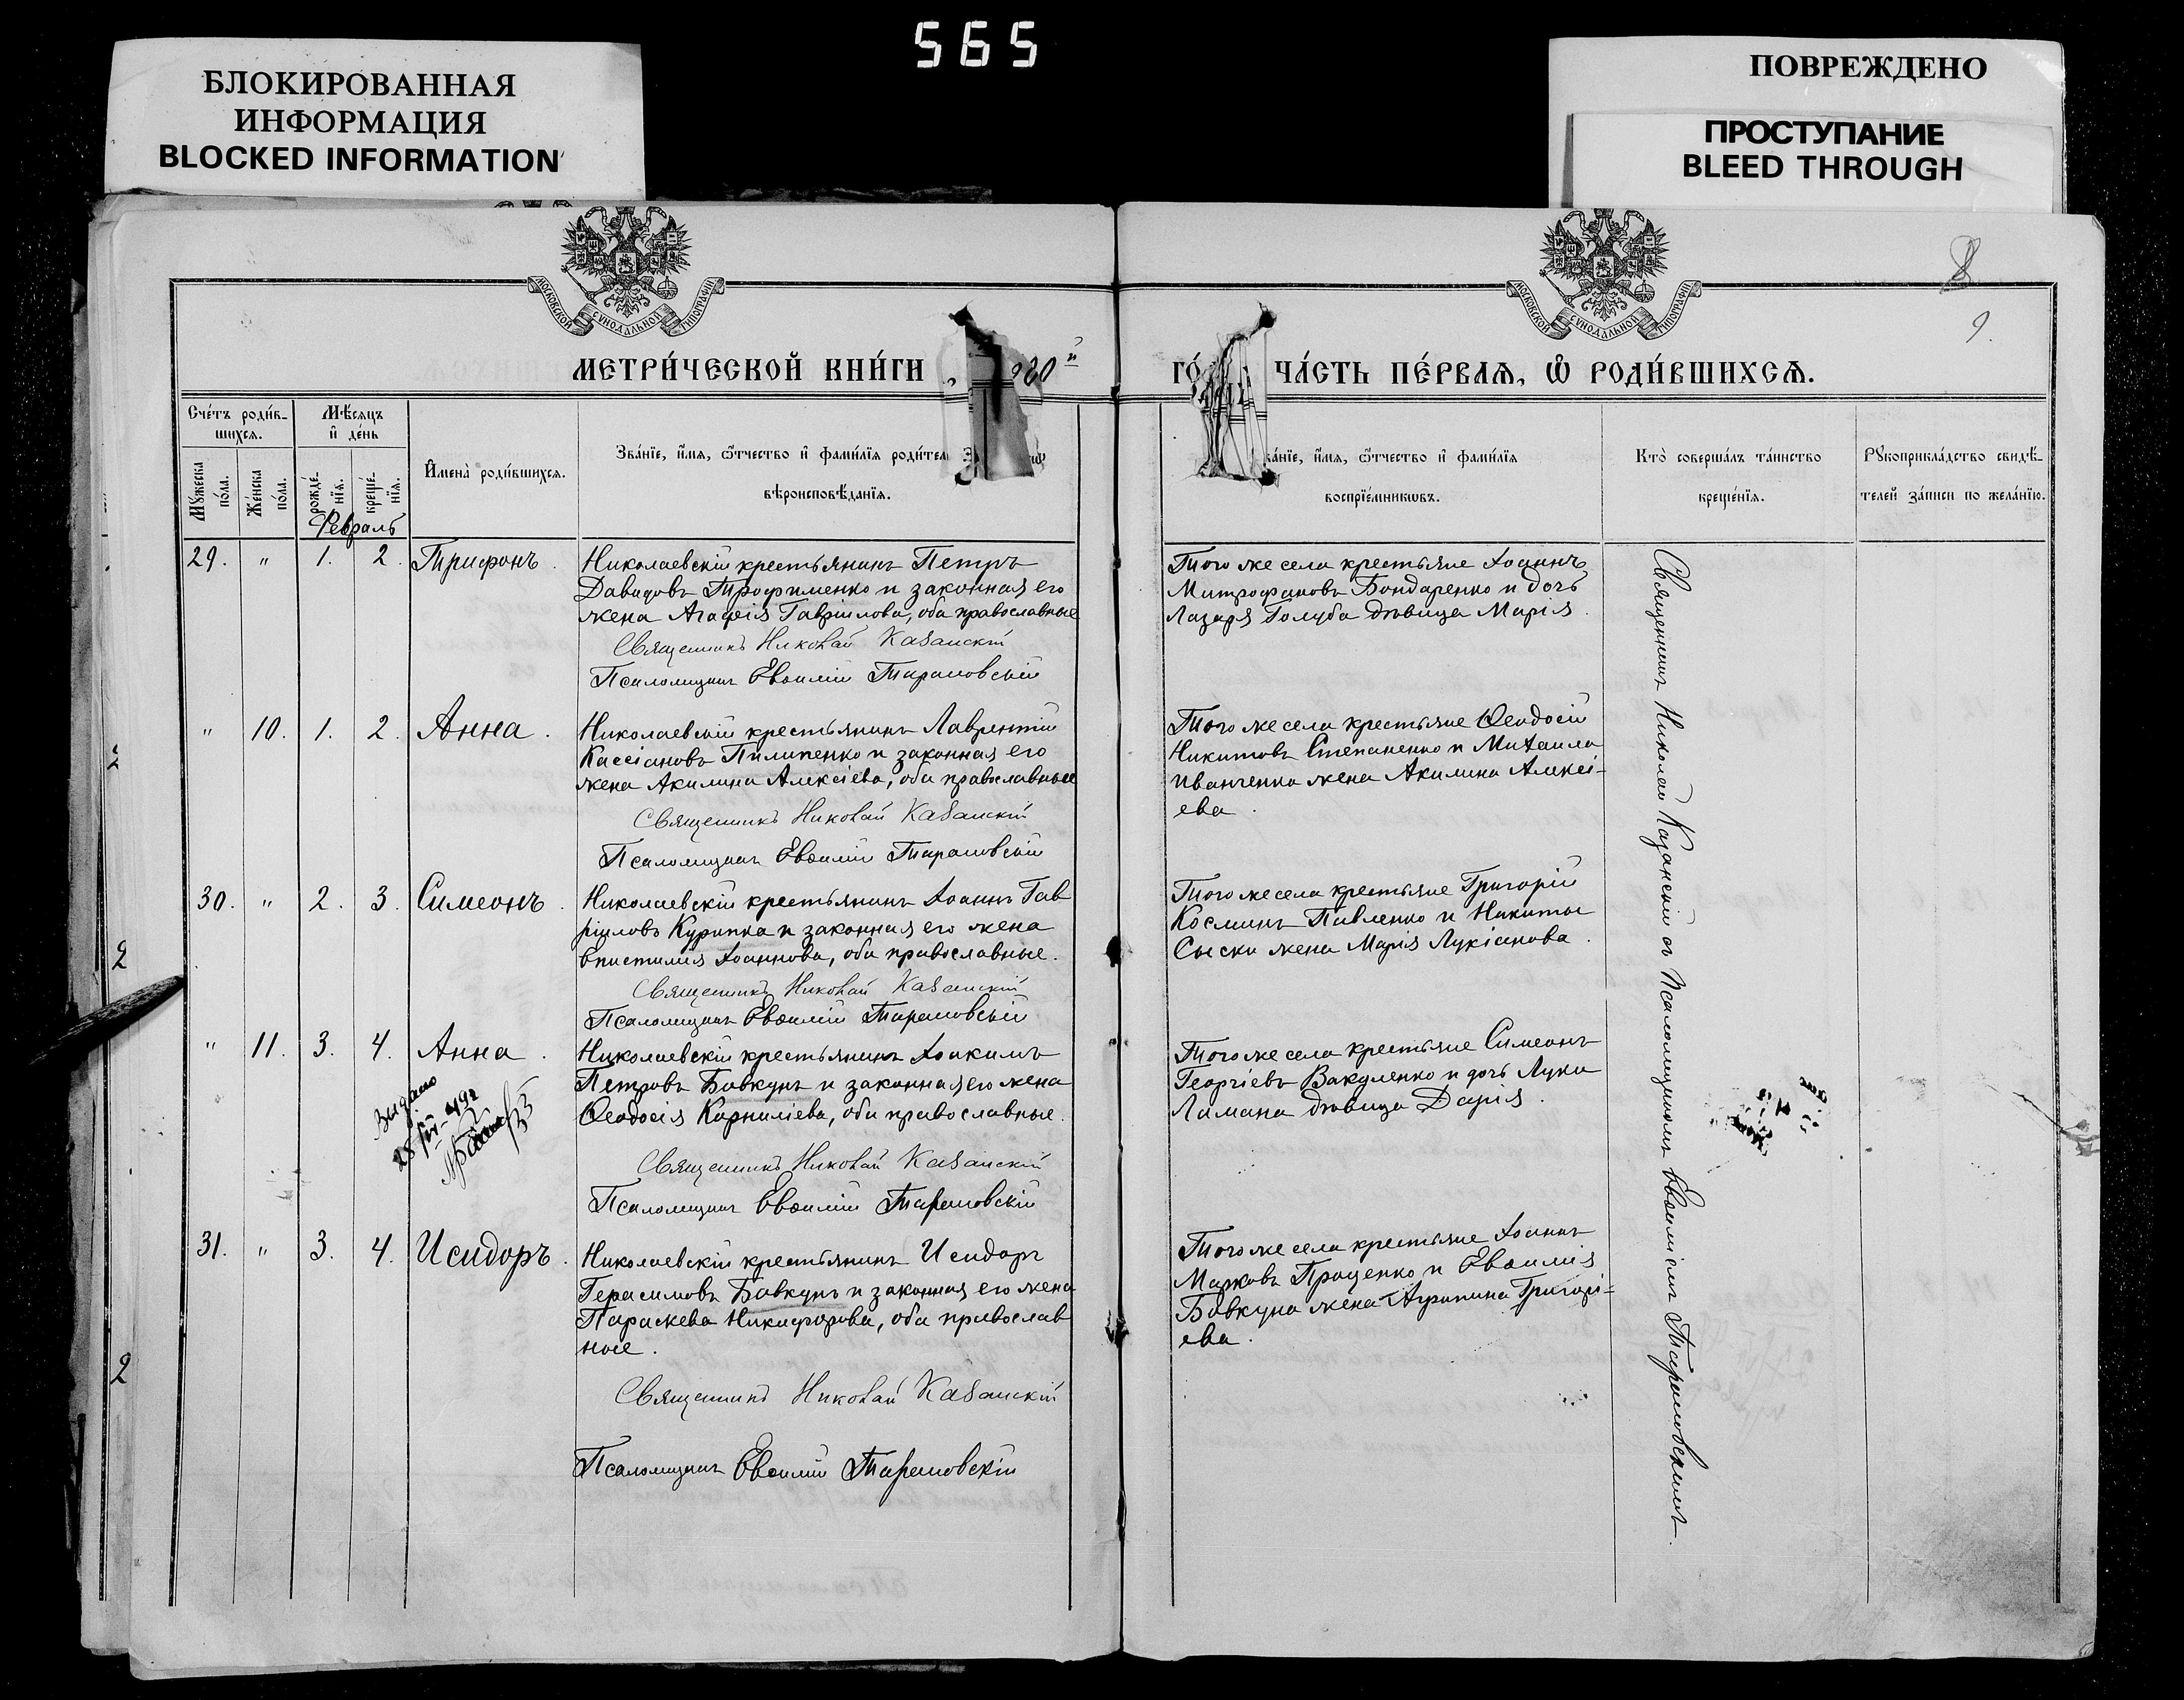 565
БЛОКИРОВАННАЯ
ИНФОРМАЦИЯ
BLOCKED INFORMATION
ПОВРЕЖДЕНО
ПРОСТУПАНИЕ
BLEED THROUGH
МОСКОВСКОЙ СѴНОДАЛЬНОЙ ТИПОГРАФІИ
МОСКОВСКОЙ СѴНОДАЛЬНОЙ ТИПОГРАФІИ
8
9.
МЕТРИ́ЧЕСКОЙ КНИ́ГИ
ЧА́СТЬ ПЕ́РВАЯ, Ѡ҆ РОДИ́ВШИХСѦ.
Сче́тъ роди́в-
шихсѧ.
Мѣсяцъ
и҆ де́нь
Мꙋжеска
по́ла.
Же́нска
по́ла.
рожде́-
нїѧ.
креще́-
нїѧ.
Февраль
И҆мена̀ роди́вшихсѧ.
Зва́нїе, и҆́мѧ, ѻ҆́тчество и҆ фами́лїѧ роди́тел
вѣроисповѣ́данїѧ.
ва́нїе, и҆́мѧ, ѻ҆́тчество и҆ фами́лїѧ
воспрїе́мникѡвъ.
Кто̀ соверша́лъ та́инство
креще́нїѧ.
Рꙋкоприкла́дство свидѣ́-
телей за́писи по жела́нїю.
29. " 1. 2. Трифонъ.
Николаевскій крестьянинъ Петръ
Давидовъ Трофименко и законная его
жена Агафія Гавріилова, оба православные
Священникъ Николай Казанскій
Псаломщикъ Евѳимій Тарановскій
Того же села крестьяне Іоаннъ
Митрофановъ Бондаренко и дочь
Лазаря Голуба дѣвица Марія.
" 10. 1. 2. Анна.
Николаевскій крестьянинъ Лаврентій
Кассіановъ Пилипенко и законная его
жена Акилина Алексіева, оба православные
Священникъ Николай Казанскій
Псаломщикъ Евѳимій Тарановскій
Того же села крестьяне Ѳеодосій
Никитовъ Степаненко и Михаила
Иванченка жена Акилина Алексі-
ева.
30. " 2. 3. Симеонъ.
Николаевскій крестьянинъ Іоаннъ Гав
ріиловъ Курипка и законная его жена
Епистимія Іоаннова, оба православные.
Священникъ Николай Казанскій
Псаломщикъ Евѳимій Тарановскій
Того же села крестьяне Григорій
Косминъ Павленко и Никиты
Сыска жена Марія Лукіанова.
" 11. 3. 4. Анна.
Выдано
Николаевскій крестьянинъ Іоакимъ
Петровъ Бовкунъ и законная его жена
Ѳеодосія Корниліева, оба православные.
Священникъ Николай Казанскій
Псаломщикъ Евѳимій Тарановскій
Того же села крестьяне Симеонъ
Георгіевъ Вакуленко и дочь Луки
Лимана дѣвица Дарія.
31. " 3. 4. Исидоръ.
Николаевскій крестьянинъ Исидоръ
Герасимовъ Бовкунъ и законная его жена
Параскева Никифорова, оба православ
ные.
Священникъ Николай Казанскій
Псаломщикъ Евѳимій Тарановскій
Того же села крестьяне Іоаннъ
Марковъ Проценко и Евѳимія
Бовкуна жена Агрипина Григорі-
ева.
Священникъ Николай Казанскій съ Псаломщикомъ Евѳиміемъ Тарановскимъ.
2
2
2